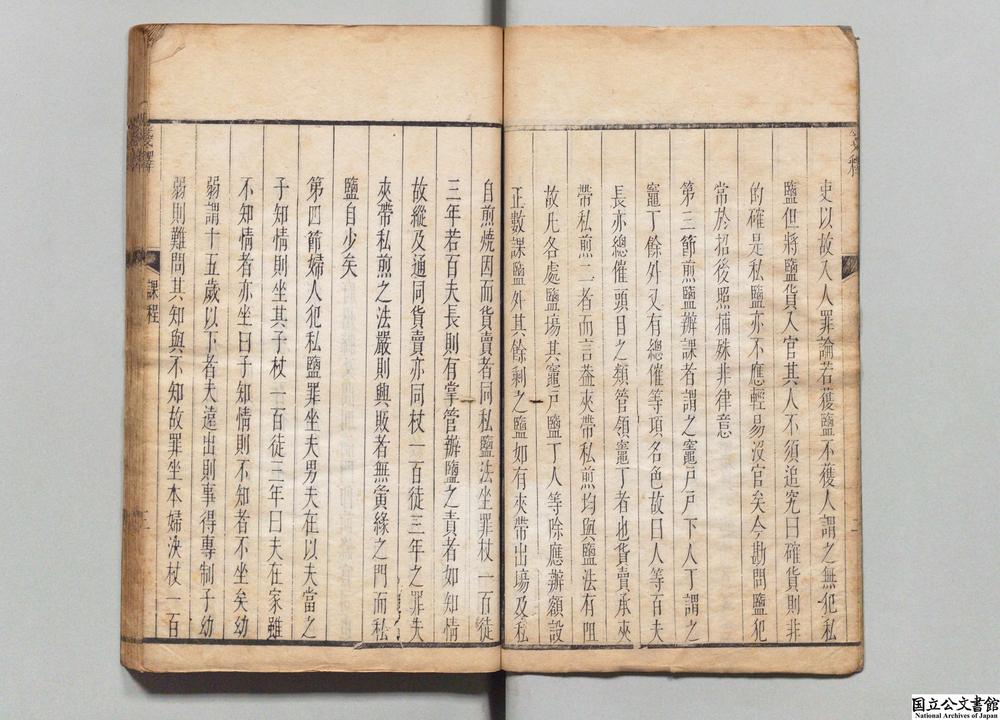 史以故入人罪論若獲鹽不獲人謂之無犯私
鹽但將鹽貨入官其人不須追究曰確貨則非
的確是私鹽亦不應輕易沒官矣今勘問鹽犯
常於招後照捕殊非律意
第三節煎鹽辦課者謂之竈戶戶下人丁謂之
竈丁餘外又有總催等項名色故曰人等百夫
長亦總催頭目之類管領竈丁者也貨賣承夾
帶私煎二者而言葢夾帶私煎均與鹽法有阻
故凡各處鹽場其竈戶鹽丁人等除應辦額設
正數課鹽外其餘剩之鹽如有夾帶出塲及私
自煎燒因而貨賣者同私鹽法坐罪杖一百徒
三年若百夫長則有掌管辦鹽之責者如知情
故縱及通同貨賣亦同杖一百徒三年之罪夫
夾帶私煎之法嚴則興販者無夤緣之門而私
鹽自少矣
第四節婦人犯私鹽罪坐夫男夫在以夫當之
子知情則坐其子杖一百徒三年曰夫在家雖
不知情者亦坐曰子知情則不知者不坐矣幼
弱謂十五歲以下者夫遠出則事得專制子幼
弱則難問其知與不知故罪坐本婦決杖一百
課程
三
二
国立公文書館
National Archives of Japan